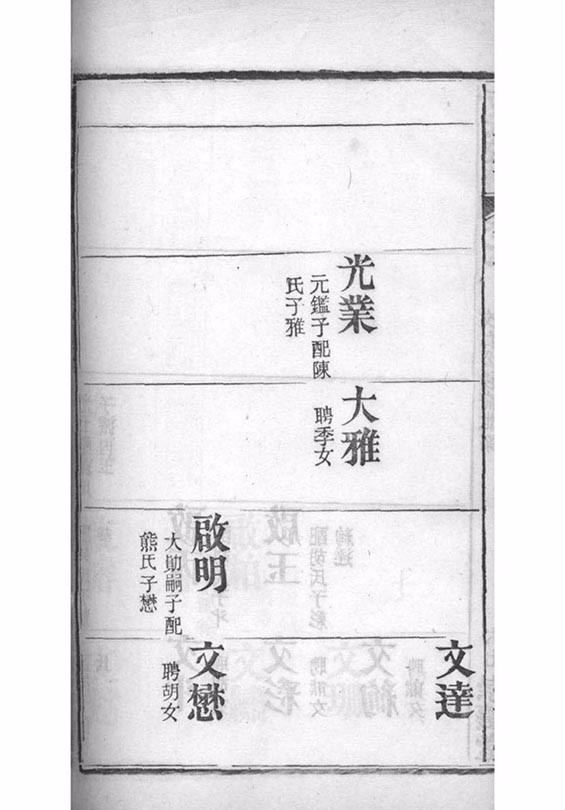 光業
元鑑子配陳
氏子雅
大雅
聘季女
啟明
大勛嗣子配
熊氏子懋
文達
文懋
聘胡女